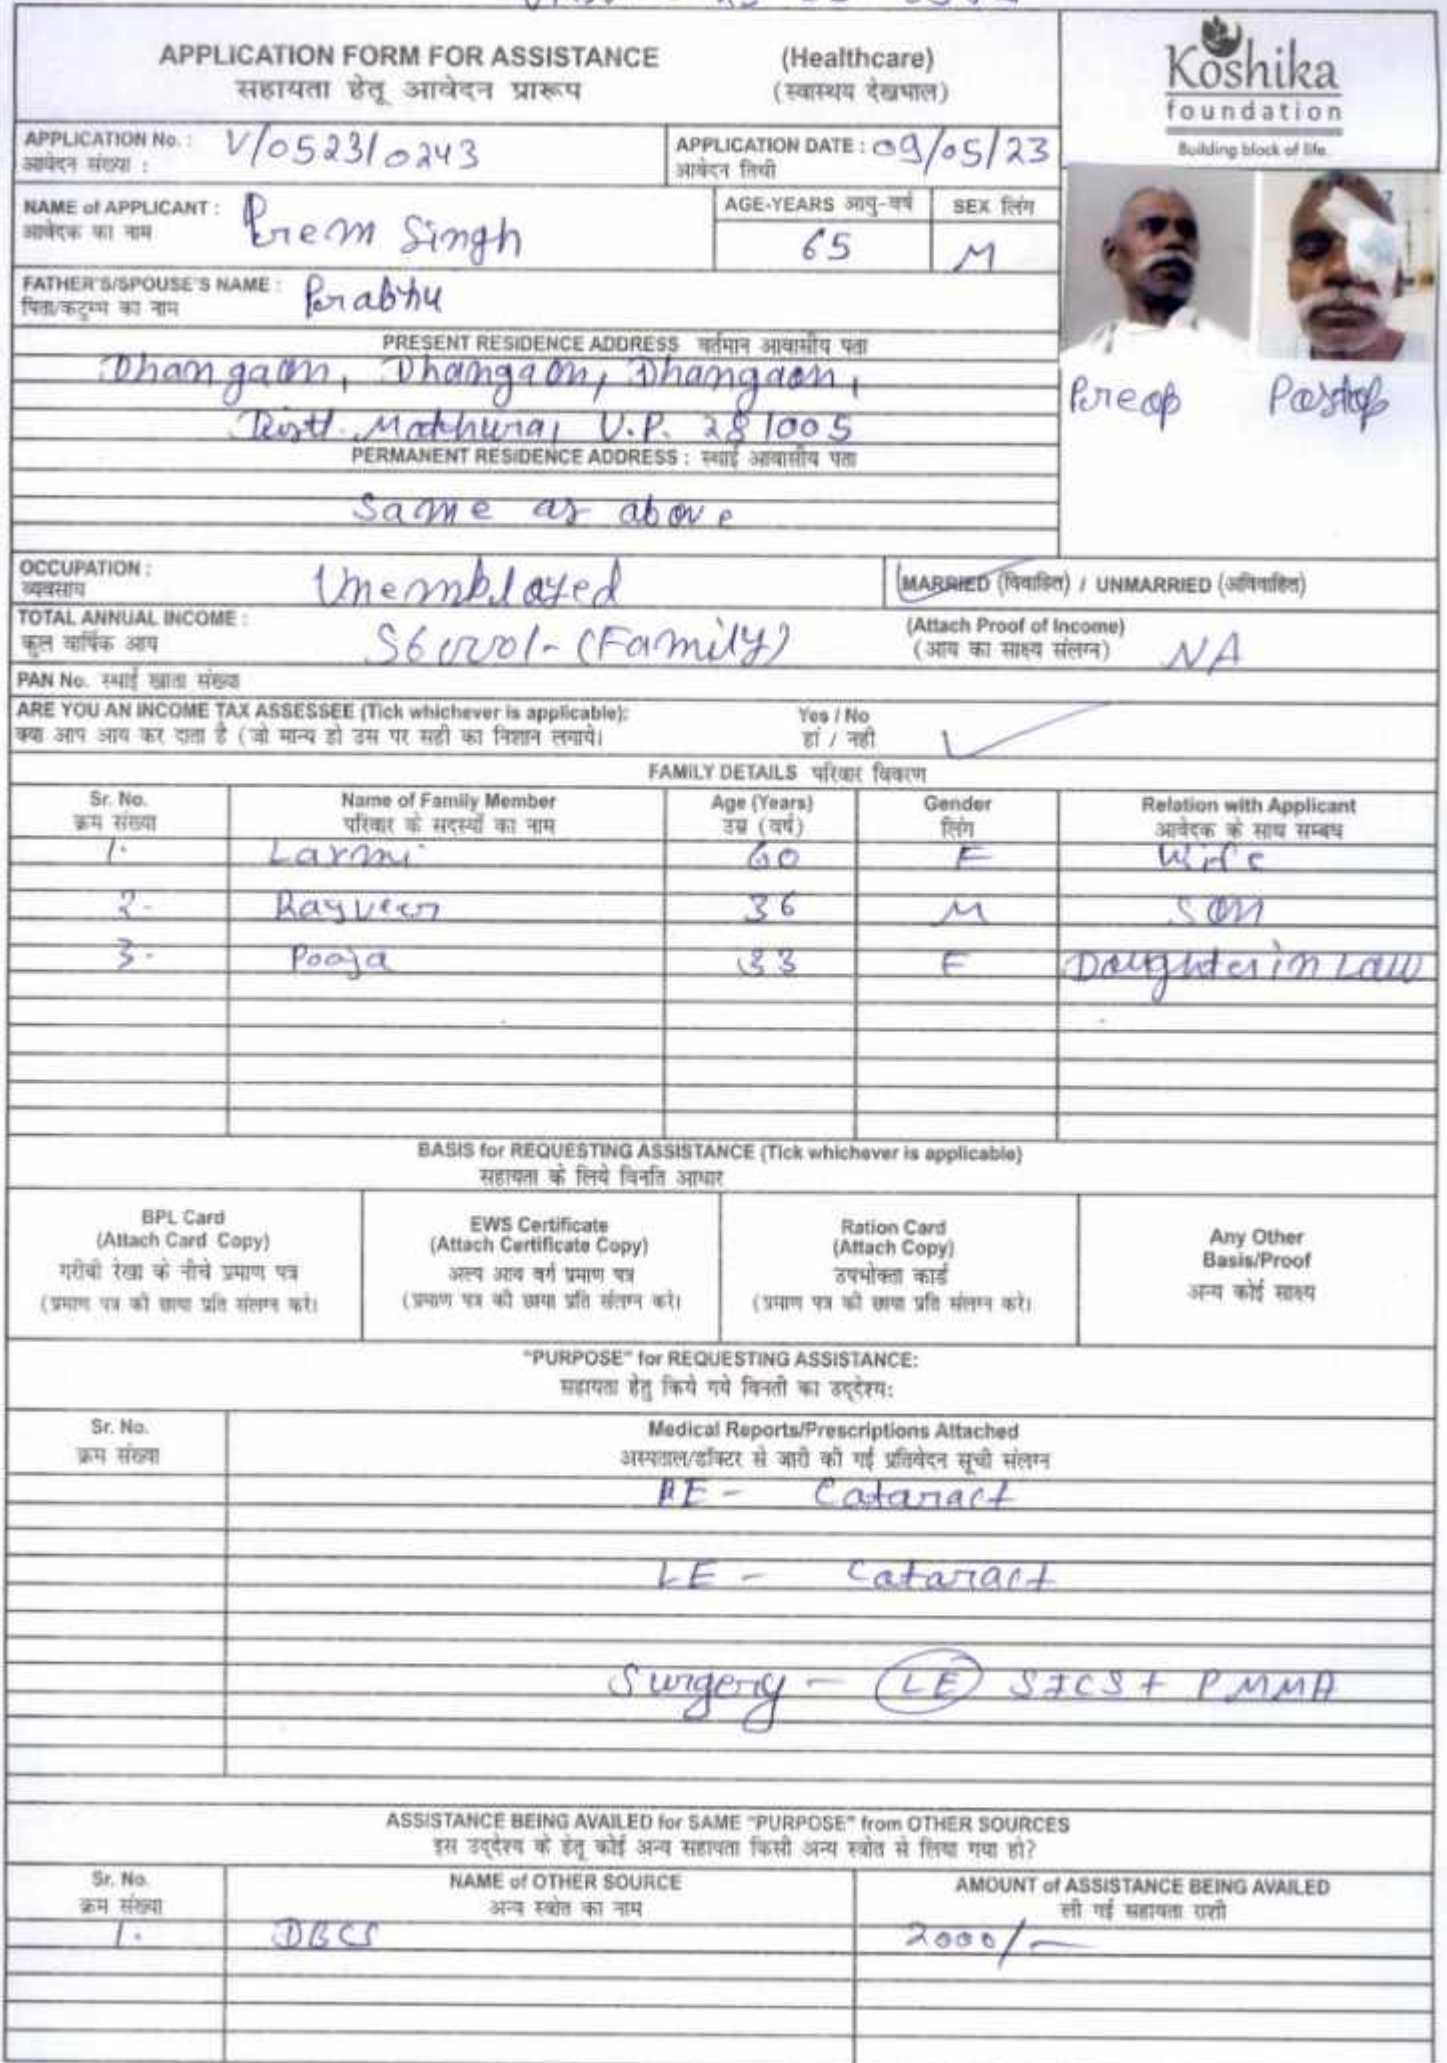 APPLICATION FORM FOR ASSISTANCE (Healthcare)
सहायता हेतू आवेदन प्रारूप (स्वास्थय देखभाल)
Koshika
foundation
Building block of life.
APPLICATION No. : V/0523/0243
आवेदन संख्या :
APPLICATION DATE : 09/05/23
आवेदन तिथी
NAME of APPLICANT : Prem Singh
आवेदक का नाम
AGE-YEARS आयु-वर्ष 65
SEX लिंग M
FATHER'S/SPOUSE'S NAME : Prabhu
पिता/कटुम्ब का नाम
Preop Postop
PRESENT RESIDENCE ADDRESS वर्तमान आवासीय पता
Dhangaon, Dhangaon, Dhangaon,
Distt. Mathura, U.P. 281005
PERMANENT RESIDENCE ADDRESS : स्थाई आवासीय पता
Same as above
OCCUPATION : Unemployed
व्यवसाय
MARRIED (विवाहित) / UNMARRIED (अविवाहित)
TOTAL ANNUAL INCOME : (Family)
कुल वार्षिक आय
(Attach Proof of Income) NA
(आय का साक्ष्य संलग्न)
PAN No. स्थाई खाता संख्या
ARE YOU AN INCOME TAX ASSESSEE (Tick whichever is applicable): Yes / No
क्या आप आय कर दाता है (जो मान्य हो उस पर सही का निशान लगाये। हां / नही
FAMILY DETAILS परिवार विवरण
Sr. No. Name of Family Member Age (Years) Gender Relation with Applicant
क्रम संख्या परिवार के सदस्यों का नाम उम्र (वर्ष) लिंग आवेदक के साथ सम्बध
1. Laxmi 60 F Wife
2- 36 M Son
3- Pooja 33 F Daughter in Law
BASIS for REQUESTING ASSISTANCE (Tick whichever is applicable)
सहायता के लिये विनति आधार
BPL Card
(Attach Card Copy)
गरीबी रेखा के नीचे प्रमाण पत्र
(प्रमाण पत्र की छाया प्रति संलग्न करे।
EWS Certificate
(Attach Certificate Copy)
अल्प आय वर्ग प्रमाण पत्र
(प्रमाण पत्र की छाया प्रति संलग्न करे।
Ration Card
(Attach Copy)
उपभोक्ता कार्ड
(प्रमाण पत्र की छाया प्रति संलग्न करे।
Any Other
Basis/Proof
अन्य कोई साक्ष्य
"PURPOSE" for REQUESTING ASSISTANCE:
सहायता हेतु किये गये विनती का उद्देश्य:
Sr. No. Medical Reports/Prescriptions Attached
क्रम संख्या अस्पताल/डॉक्टर से जारी की गई प्रतिवेदन सूची संलग्न
RE - Cataract
LE - Cataract
Surgery - LE SICS + PMMA
ASSISTANCE BEING AVAILED for SAME "PURPOSE" from OTHER SOURCES
इस उद्देश्य के हेतू कोई अन्य सहायता किसी अन्य स्त्रोत से लिया गया हो?
Sr. No. NAME of OTHER SOURCE AMOUNT of ASSISTANCE BEING AVAILED
क्रम संख्या अन्य स्त्रोत का नाम ली गई सहायता राशी
1. DBCS 2000/-